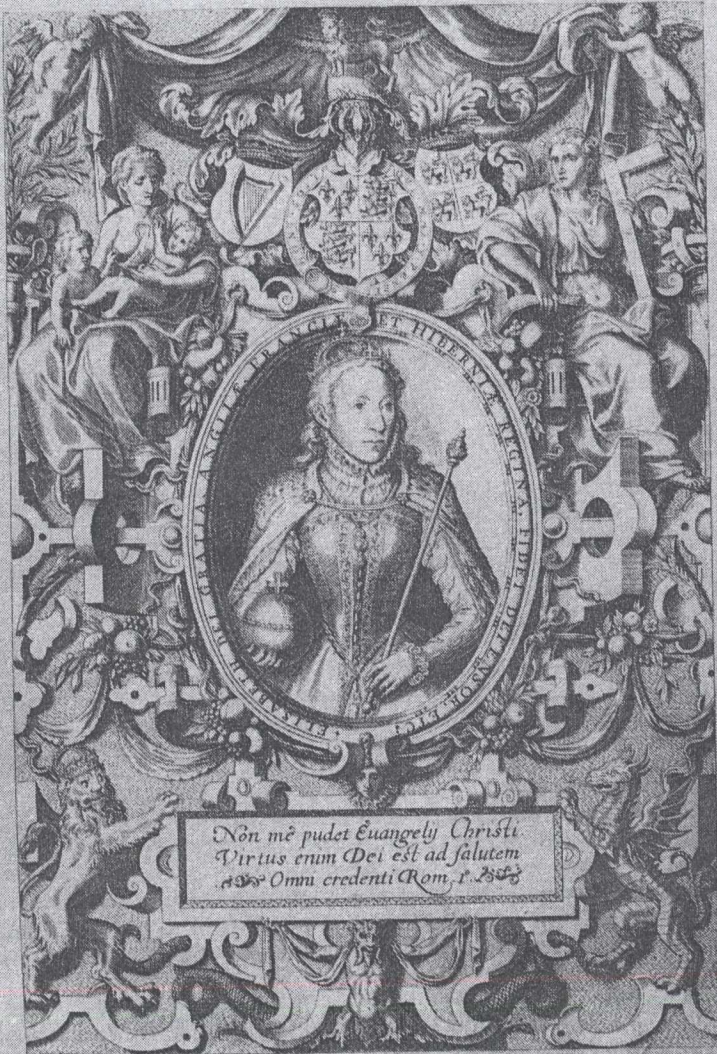 ELISABETH DEI GRATIA ANGLIÆ FRANCIÆ ET HIBERNIÆ REGINA FIDEI DEFENSOR ETC
Non me pudet Euangelij Christi.
Virtus enim Dei est ad salutem
Omni credenti Rom. 1.